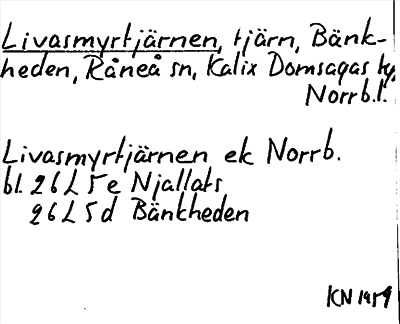 Livasmyrtjärnen, tjärn, Bänk-
heden, Råneå sn, Kalix Domsagas tg,
Norrb.l.
Livasmyrtjärnen ek Norrb.
bl. 26 L 5 e Njallats
26 L 5 d Bänkheden
KN 1959